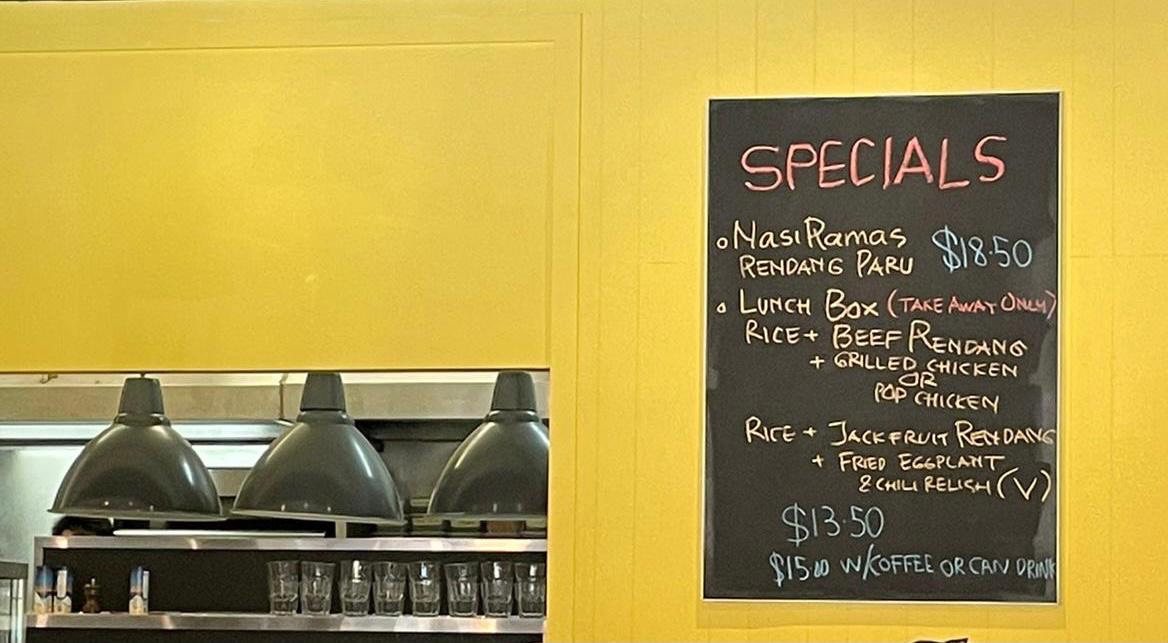 SPECIALS
Nasi Ramas $18.50
RENDANG PARU
LUNCH BOX (TAKE AWAY ONLY)
RICE + BEEF RENDANG
+ GRILLED CHICKEN
OR
POP CHICKEN
RICE + JACKFRUIT RENDANG
+ FRIED EGGPLANT
& CHILI RELISH (V)
$13.50
$15.00 W/COFFEE OR CAN DRINK